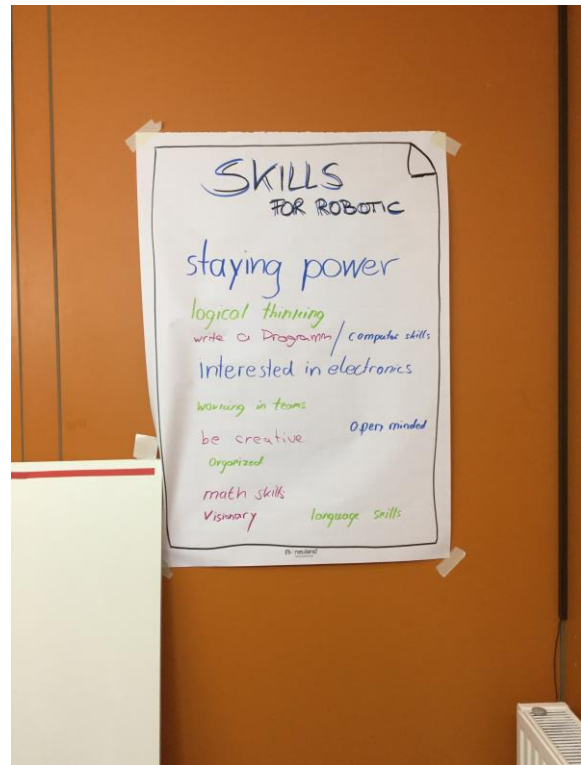 SKILLS
FOR ROBOTIC
staying power
logical thinking
write a Programm / computer skills
Interested in electronics
working in teams
open minded
be creative
Organized
math skills
Visionary language skills
neuland